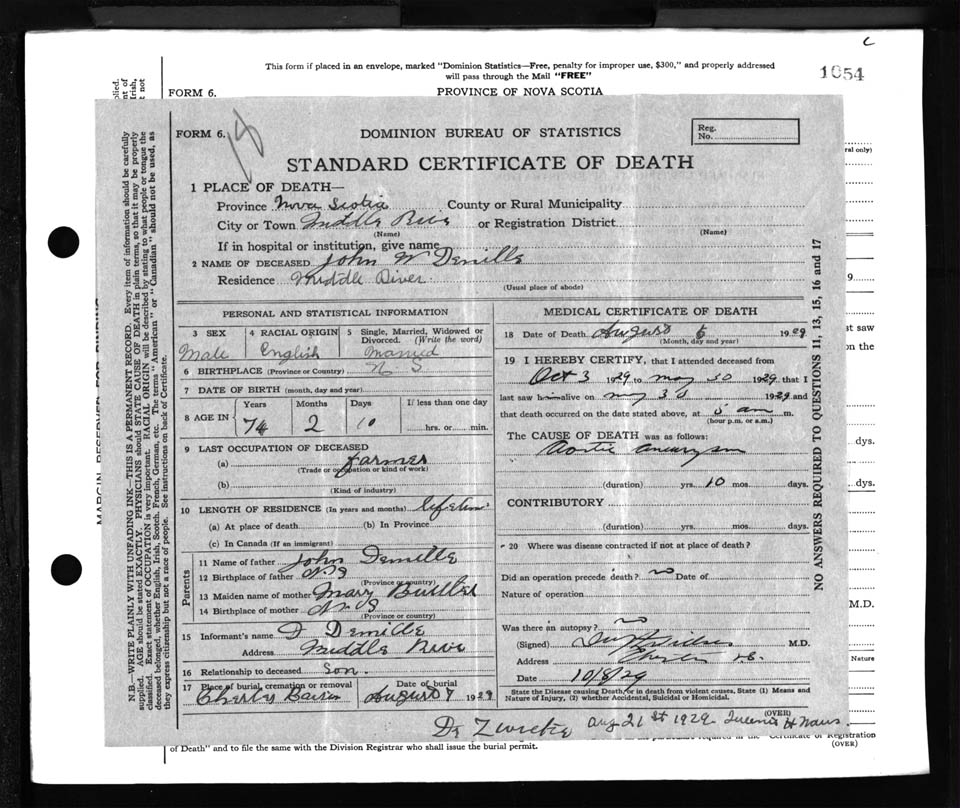 This form if placed in an envelope, marked "Dominion Statistics—Free, penalty for improper use, $300," and properly addressed
will pass through the Mail "FREE"
1054
FORM 6.
PROVINCE OF NOVA SCOTIA
FORM 6.
DOMINION BUREAU OF STATISTICS
Reg.
No.
STANDARD CERTIFICATE OF DEATH
1 PLACE OF DEATH—
Province Nova Scotia County or Rural Municipality
City or Town Middle River or Registration District
(Name) (Name)
If in hospital or institution, give name
2 NAME OF DECEASED John W Demille
Residence Middle River
(Usual place of abode)
PERSONAL AND STATISTICAL INFORMATION
3 SEX 4 RACIAL ORIGIN 5 Single, Married, Widowed or Divorced. (Write the word)
Male English Married
6 BIRTHPLACE (Province or Country) N S
7 DATE OF BIRTH (month, day and year)
8 AGE IN Years Months Days If less than one day
74 2 10 hrs. or min.
9 LAST OCCUPATION OF DECEASED
(a) Farmer
(Trade or occupation or kind of work)
(b)
(Kind of industry)
10 LENGTH OF RESIDENCE (In years and months)
(a) At place of death (b) In Province
(c) In Canada (If an immigrant)
Parents
11 Name of father John Demille
12 Birthplace of father N S
(Province or country)
13 Maiden name of mother Mary
14 Birthplace of mother N S
(Province or country)
15 Informant's name Demille
Address Middle River
16 Relationship to deceased Son.
17 Place of burial, cremation or removal Date of burial
August 7 1929
MEDICAL CERTIFICATE OF DEATH
18 Date of Death August 6 1929
(Month, day and year)
19 I HEREBY CERTIFY, that I attended deceased from
Oct 3 1929 to May 30 1929 that I
last saw him alive on May 30 1929 and
that death occurred on the date stated above, at 5 am m.
(hour p.m. or a.m.)
The CAUSE OF DEATH was as follows:
Aortic aneurysm
(duration) yrs. 10 mos. days.
CONTRIBUTORY
(duration) yrs. mos. days.
20 Where was disease contracted if not at place of death?
Did an operation precede death? no Date of
Nature of operation
Was there an autopsy? no
(Signed) M.D.
Address Chester N.S.
Date 10/8/29
State the Disease causing Death, or in death from violent causes, State (1) Means and
Nature of Injury, (2) whether Accidental, Suicidal or Homicidal.
(OVER)
Aug 21st 1929
N.B.—WRITE PLAINLY WITH UNFADING INK—THIS IS A PERMANENT RECORD. Every item of information should be carefully
supplied. AGE should be stated EXACTLY. PHYSICIANS should STATE CAUSE OF DEATH in plain terms, so that it may be properly
classified. Exact statement of OCCUPATION is very important. RACIAL ORIGIN will be described by stating to what people or tongue the
deceased belonged, whether English, Irish, Scotch, French, German, etc. The terms "American" or "Canadian" should not be used, as
they express citizenship but not a race of people. See instructions on back of Certificate.
NO ANSWERS REQUIRED TO QUESTIONS 11, 13, 15, 16 and 17
of Death" and to file the same with the Division Registrar who shall issue the burial permit.
(OVER)
M.D.
Nature